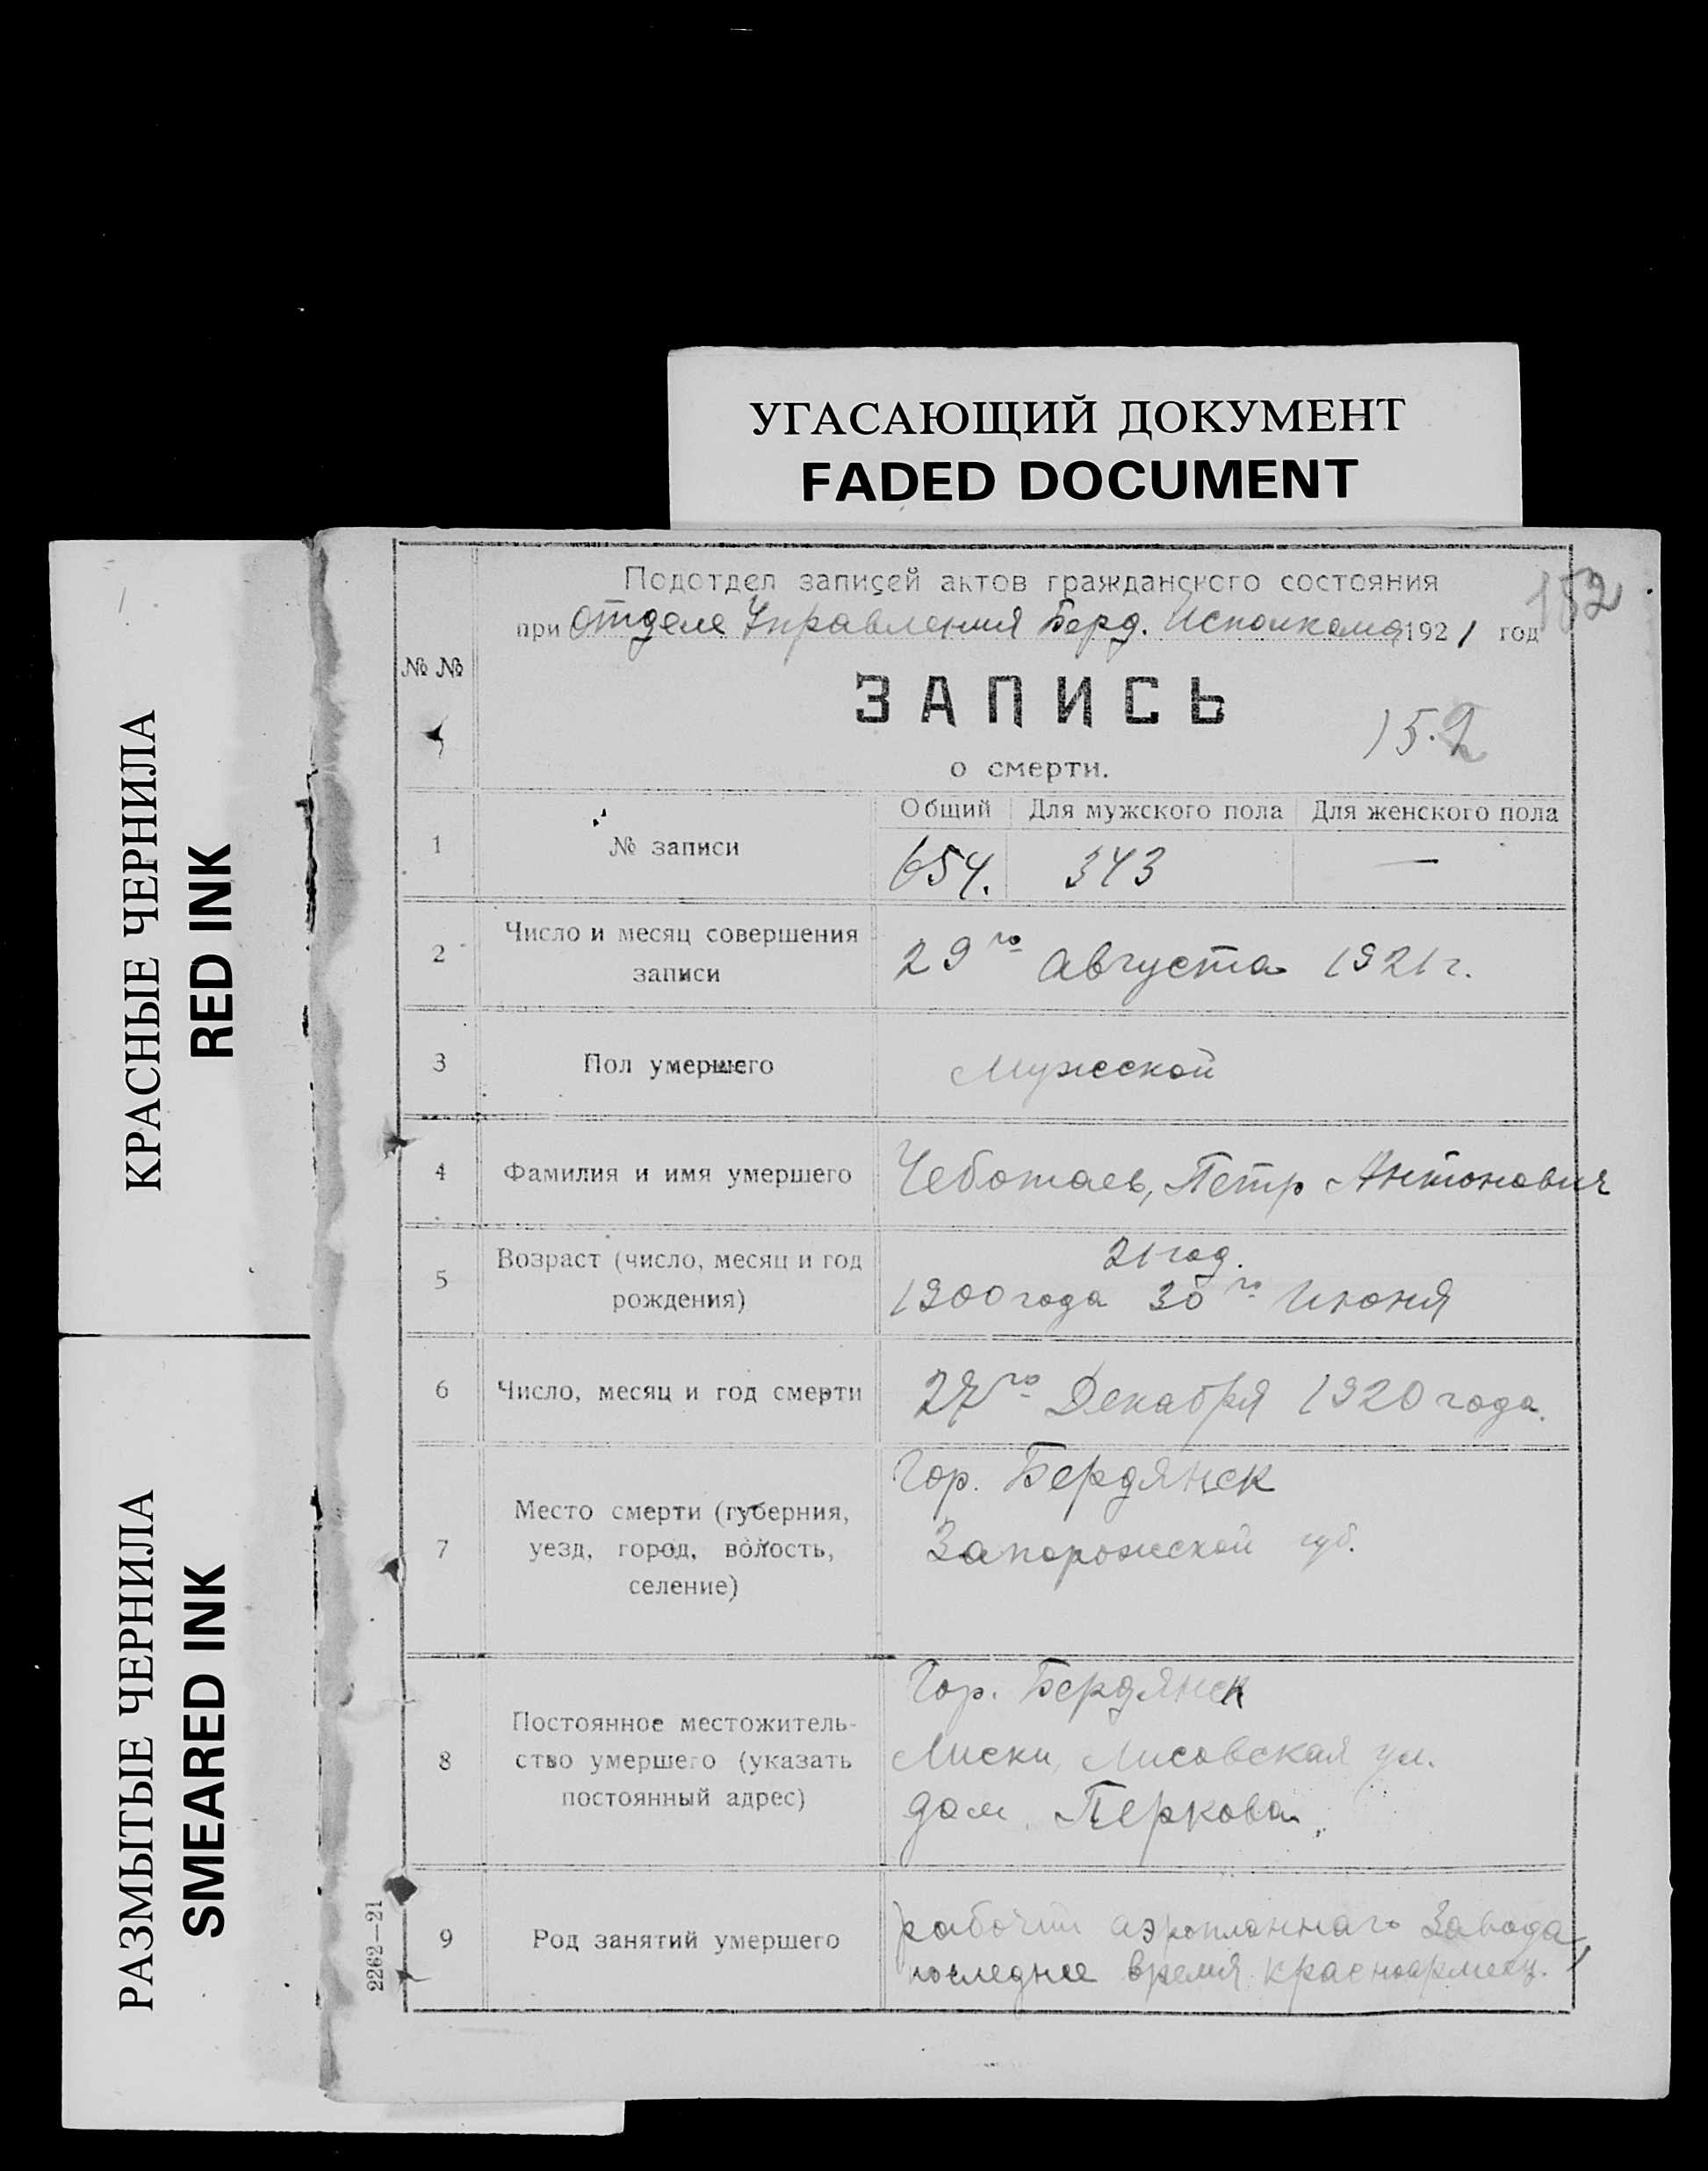 УГАСАЮЩИЙ ДОКУМЕНТ
FADED DOCUMENT
КРАСНЫЕ ЧЕРНИЛА
RED INK
РАЗМЫТЫЕ ЧЕРНИЛА
SMEARED INK
Подотдел записей актов гражданского состояния
при Отделе Управления Берд. Исполкома 1921 год
152
№ №
ЗАПИСЬ
152
о смерти.
Общий Для мужского пола Для женского пола
1 № записи 654. 343 —
2 Число и месяц совершения
записи
29го Августа 1921 г.
3 Пол умершего Мужеской
4 Фамилия и имя умершего Чеботаев, Петр Антонович
5 Возраст (число, месяц и год
рождения)
21 год.
1900 года 30го Июня
6 Число, месяц и год смерти 27го Декабря 1920 года.
7 Место смерти (губерния,
уезд, город, волость,
селение)
Гор. Бердянск
Запорожской губ.
8 Постоянное местожитель-
ство умершего (указать
постоянный адрес)
Гор. Бердянск
Лиски, Лисовская ул.
дом Перкова.
9 Род занятий умершего
рабочий аэропланнаго Завода,
последнее время красноармеец.
2262—21